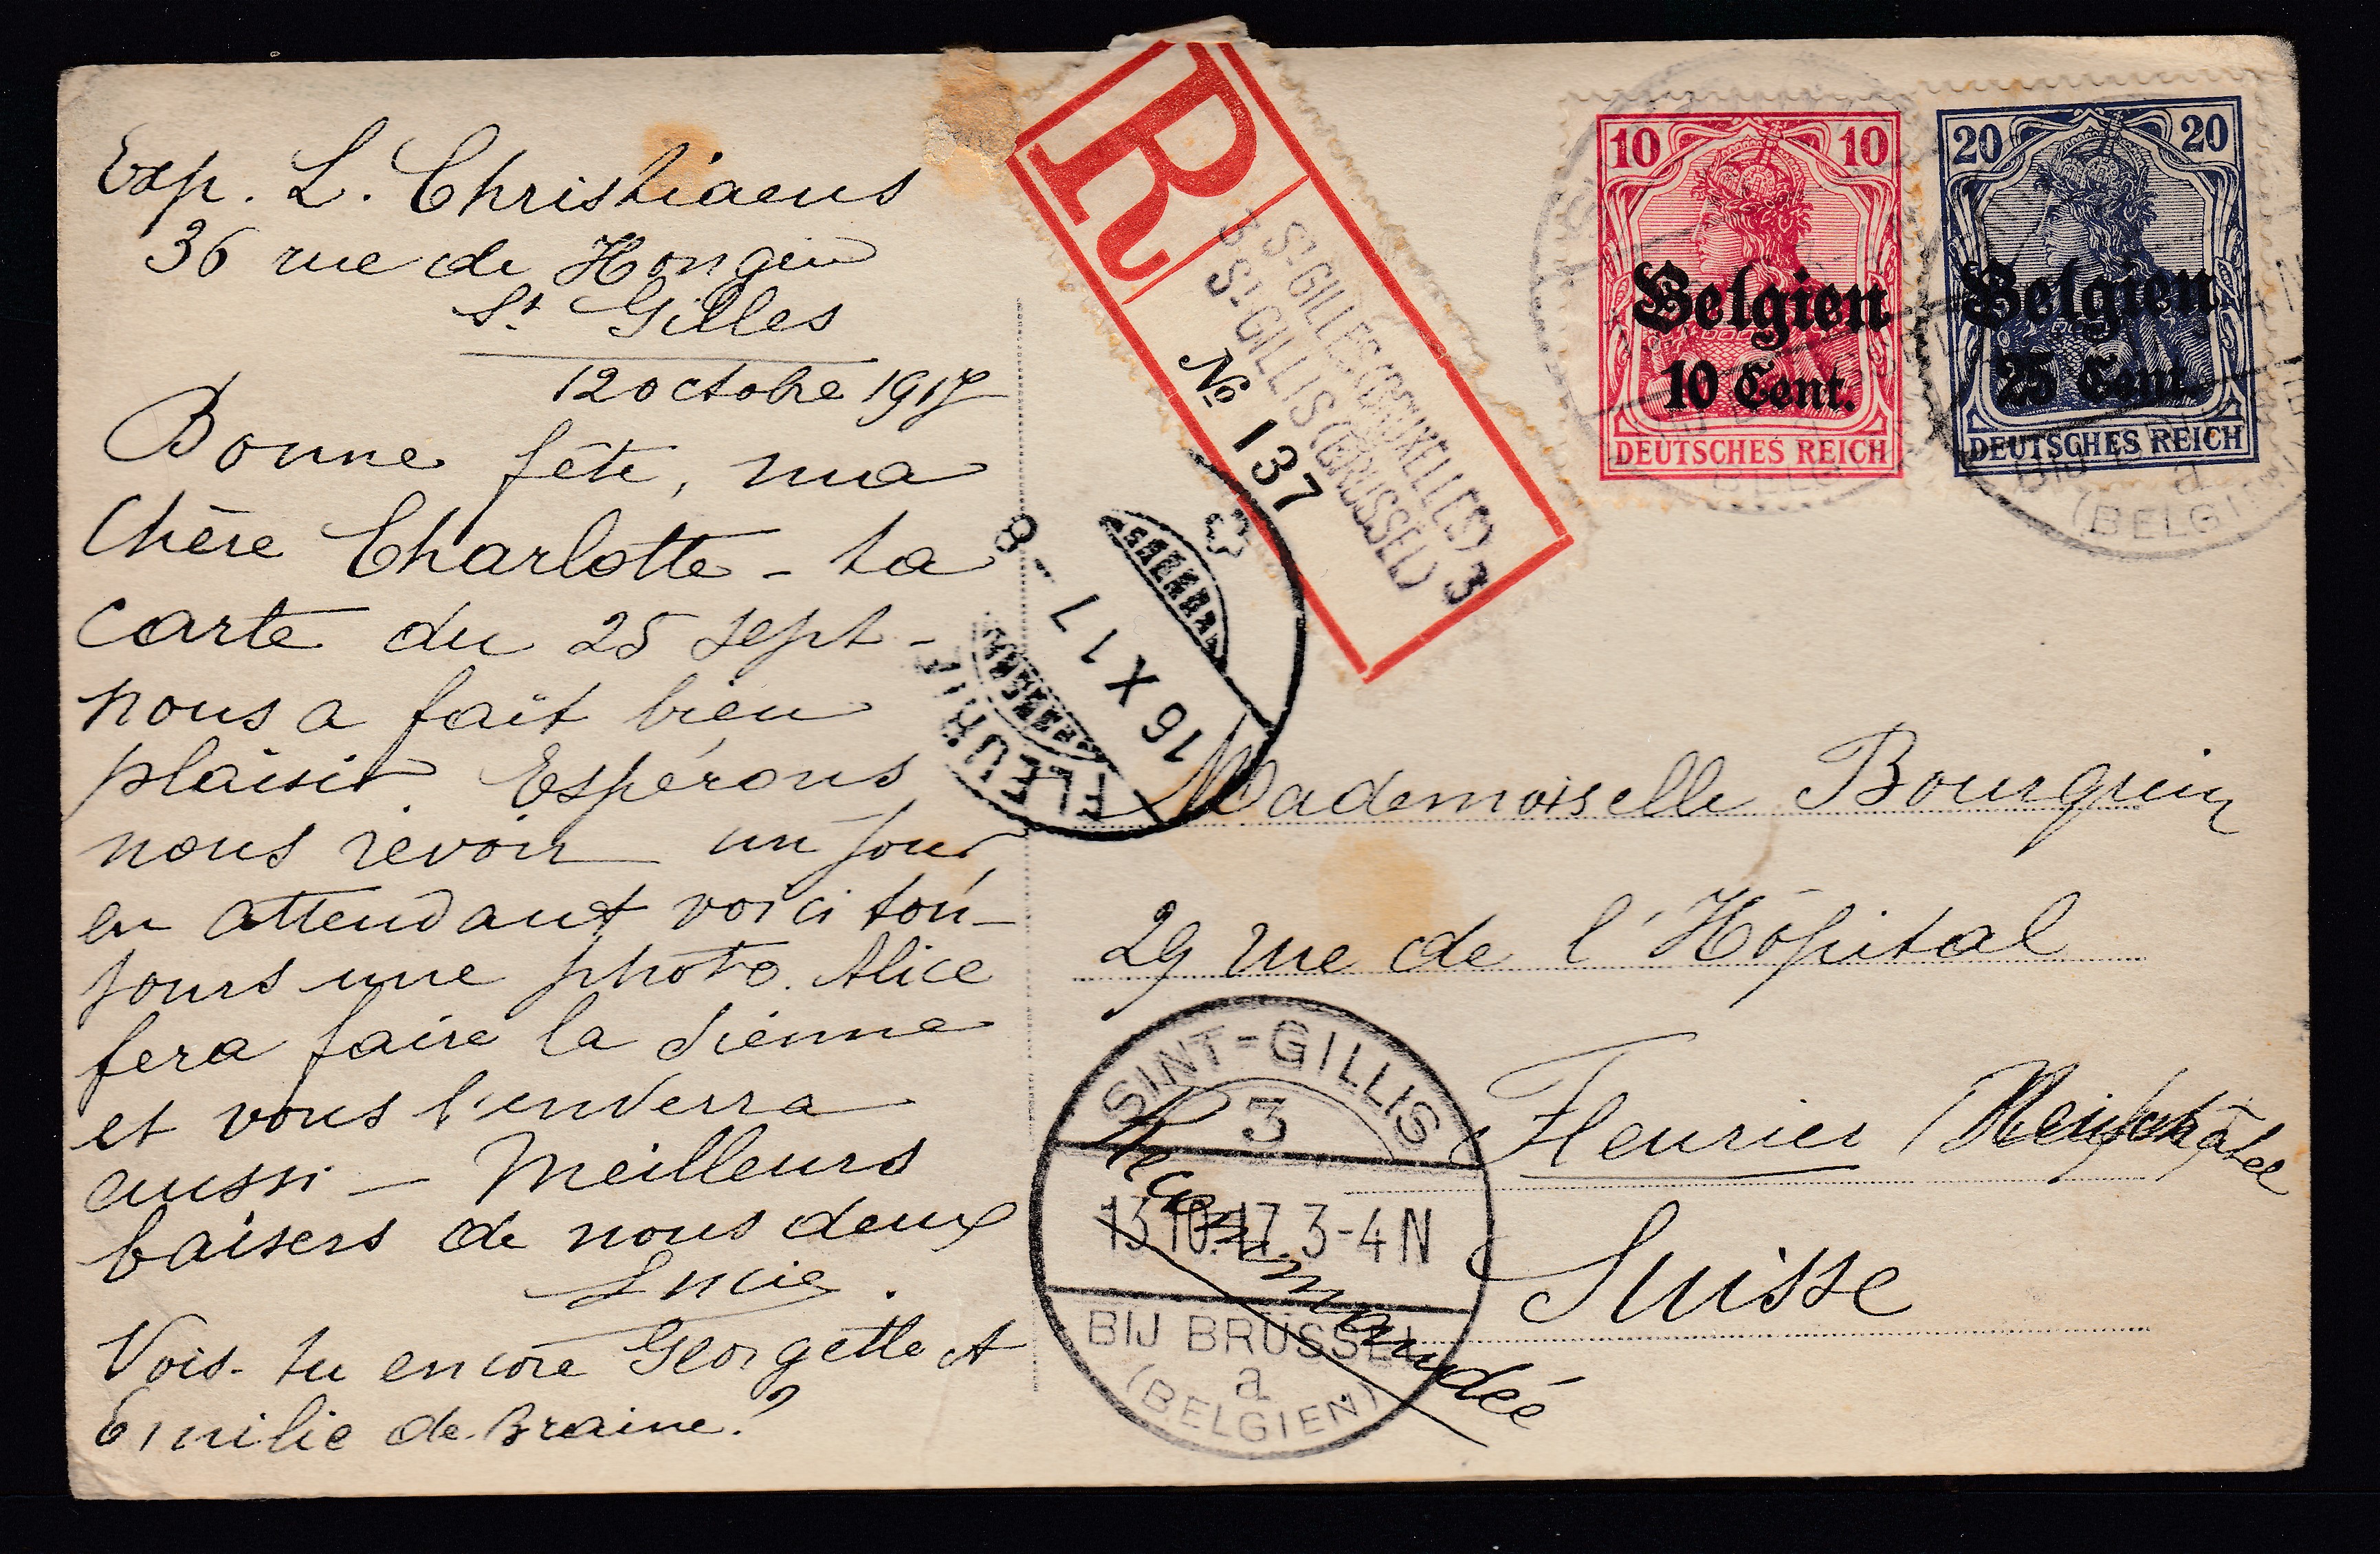 Exp. L. Christiaens
36 rue de Hongrie
St Gilles
12 octobre 1917
Bonne fête, ma
chère Charlotte - ta
carte du 25 sept -
nous a fait bien
plaisir. Espérons
nous revoir un jour,
en attendant voici tou-
jours une photo. Alice
fera faire la sienne
et vous l'enverra
aussi - Meilleurs
baisers de nous deux
Lucie.
Vois-tu encore Georgette et
Emilie de Braine?
R
St GILLES (BRUXELLES) 3
3 St GILLIS (BRÜSSEL)
No 137
FLEURIER
16 X 17 - 8
10 10
Belgien
10 Cent.
DEUTSCHES REICH
20 20
Belgien
25 Cent.
DEUTSCHES REICH
BIJ
a
(BELGI
Mademoiselle Bourquin
29 rue de l'Hôpital
Fleurier (Neuchâtel
Suisse
SINT-GILLIS
3
13.10.17. 3-4 N
BIJ BRÜSSEL
a
(BELGIEN)
Recommandée